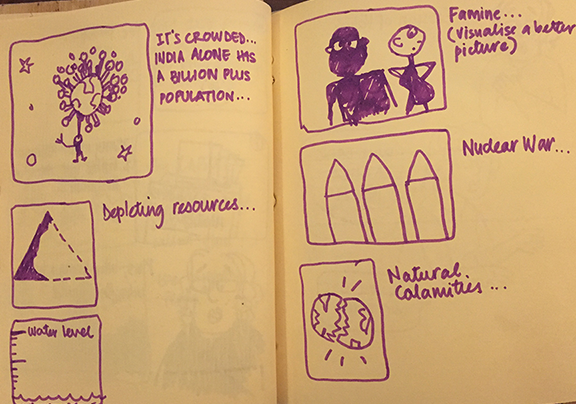 IT'S CROWDED...
INDIA ALONE HAS
A BILLION PLUS
POPULATION...
Depleting resources...
Water level
Famine...
(visualise a better
picture)
Nuclear War...
Natural
Calamities...